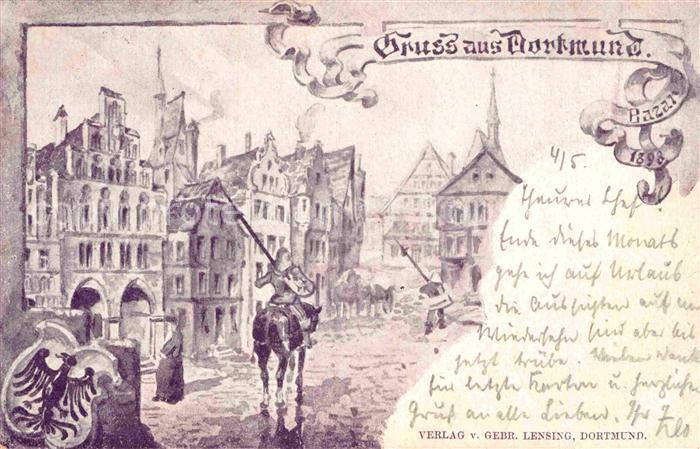 Gruss aus Dortmund.
Bazar
1898
4/5.
Theurer Chef!
Ende dieses Monats
gehe ich auf Urlaub
die Aussichten auf
Wiedersehn sind aber bis
jetzt trübe.
für letzte Karten u. herzliche
Gruß an alle Lieben. Ihr
VERLAG v. GEBR. LENSING, DORTMUND.